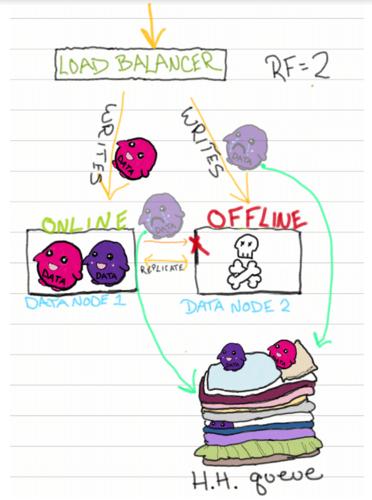 LOAD BALANCER
RF=2
WRITES
WRITES
DATA
DATA
ONLINE
OFFLINE
DATA
DATA
DATA
REPLICATE
DATA NODE 1
DATA NODE 2
H.H. queue